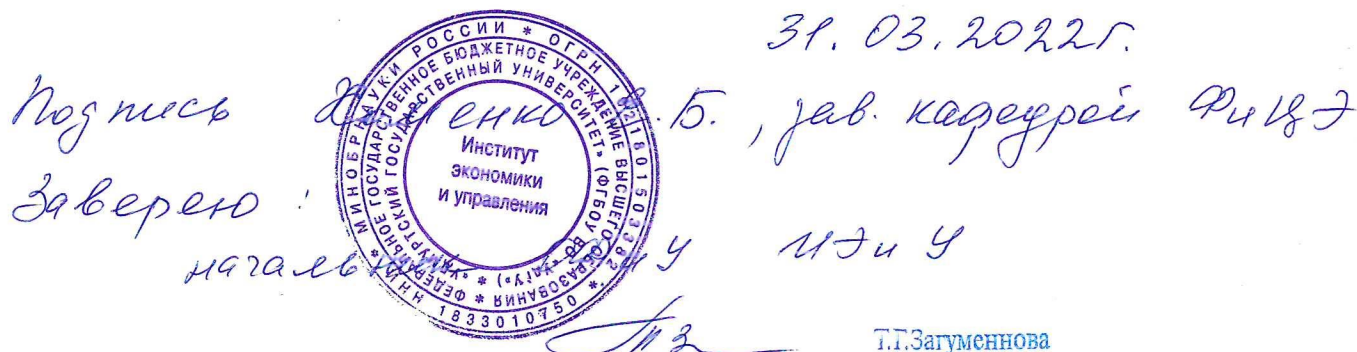 31.03.2022г.
Подпись енко .Б., зав. кафедрой ФиЦЭ
Заверено :
ИЭиУ
* МИНОБРНАУКИ РОССИИ * ОГРН 1021801503382 * ИНН 1833010750
ФЕДЕРАЛЬНОЕ ГОСУДАРСТВЕННОЕ БЮДЖЕТНОЕ УЧРЕЖДЕНИЕ ВЫСШЕГО ОБРАЗОВАНИЯ *
«УДМУРТСКИЙ ГОСУДАРСТВЕННЫЙ УНИВЕРСИТЕТ» (ФГБОУ ВО «УдГУ») *
Институт
экономики
и управления
Т.Г.Загуменнова